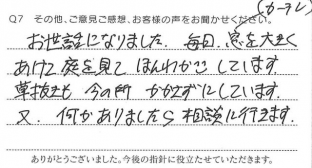 (カーテン)
Q7 その他、ご意見ご感想、お客様の声をお聞かせください。
お世話になりました。毎日、窓を大きく
あけて庭を見て ほんわかに しています。
草抜きも 今の所 かかさずにしています。
又、何かありましたら 相談に行きます。
ありがとうございました。今後の指針に役立たせていただきます。